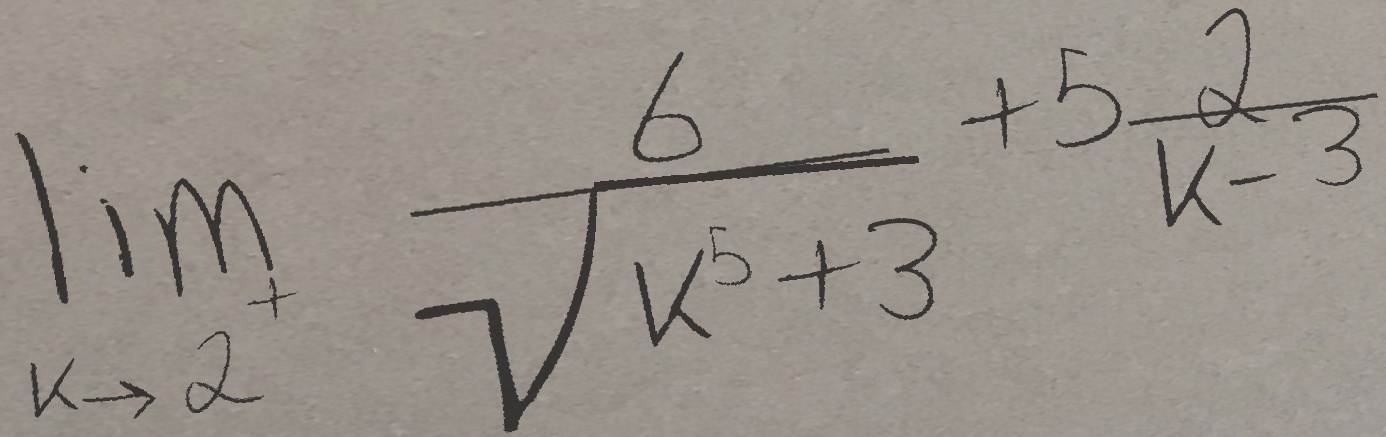 \lim_{k \to 2^+} \frac{6}{\sqrt{k^5+3}} + 5\frac{2}{k-3}